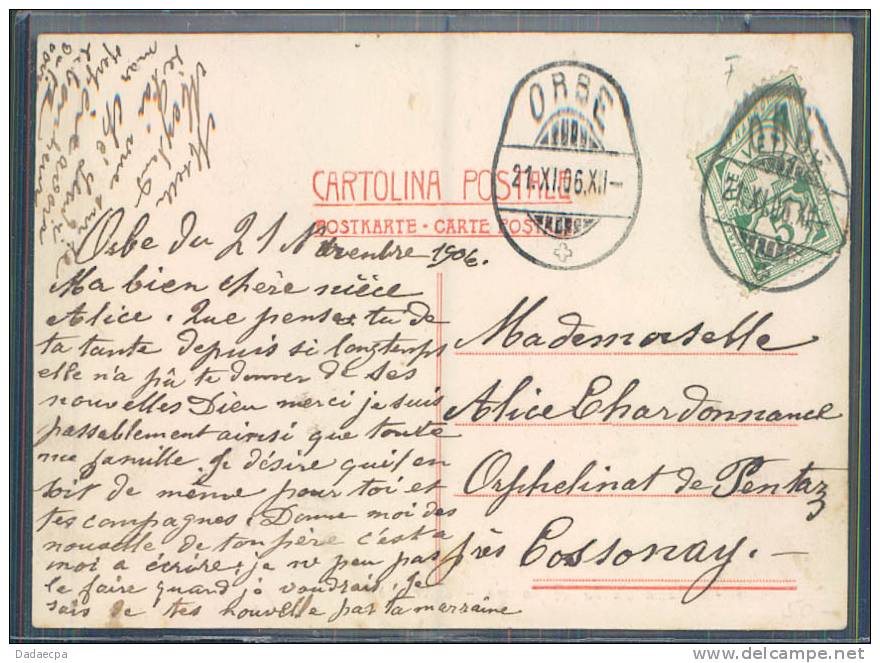 CARTOLINA POSTALE
POSTKARTE - CARTE POSTALE
ORBE
21.XI.06.XII-
HELVETIA
5
Orbe du 21 Novembre 1906.
Ma bien chère nièce
Alice. Que penses tu de
ta tante depuis si longtemps
elle n'a pû te donner de ses
nouvelles Dieu merci je suis
passablement ainsi que toute
ma famille. Je désire qu'il en
soit de même pour toi et
tes compagnes. Donne moi des
nouvelle de ton père c'est a
moi a écrire, je ne peu pas
le faire quand jo voudrais. Je
sais de tes nouvelle par ta marraine
Mademoiselle
Alice Chardonnance
Orphelinat de Pentaz
près Cossonay. -
Dadaecpa
http://www.delcampe.net